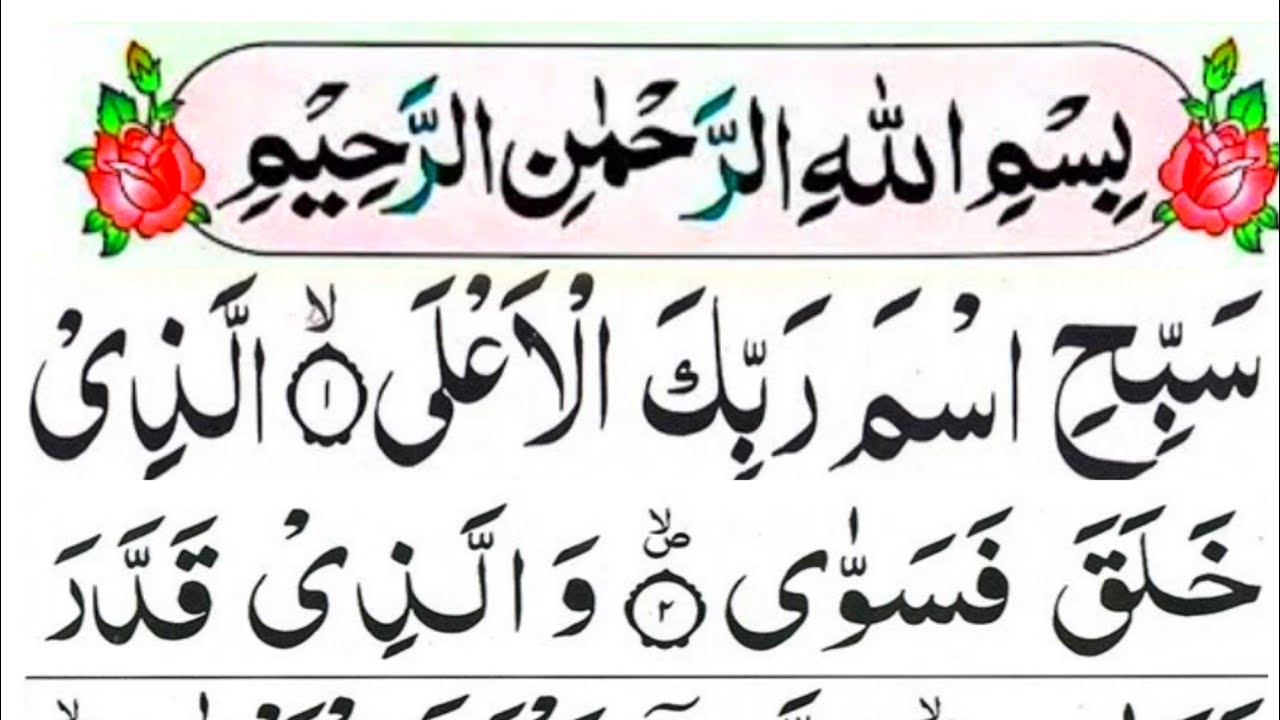 بِسْمِ اللّٰهِ الرَّحْمٰنِ الرَّحِيْمِ
سَبِّحِ اسْمَ رَبِّكَ الْاَعْلَى ۙ‏﴿۱﴾ الَّذِىْ
خَلَقَ فَسَوّٰى ۙ ۪‏﴿۲﴾ وَ الَّذِىْ قَدَّرَ